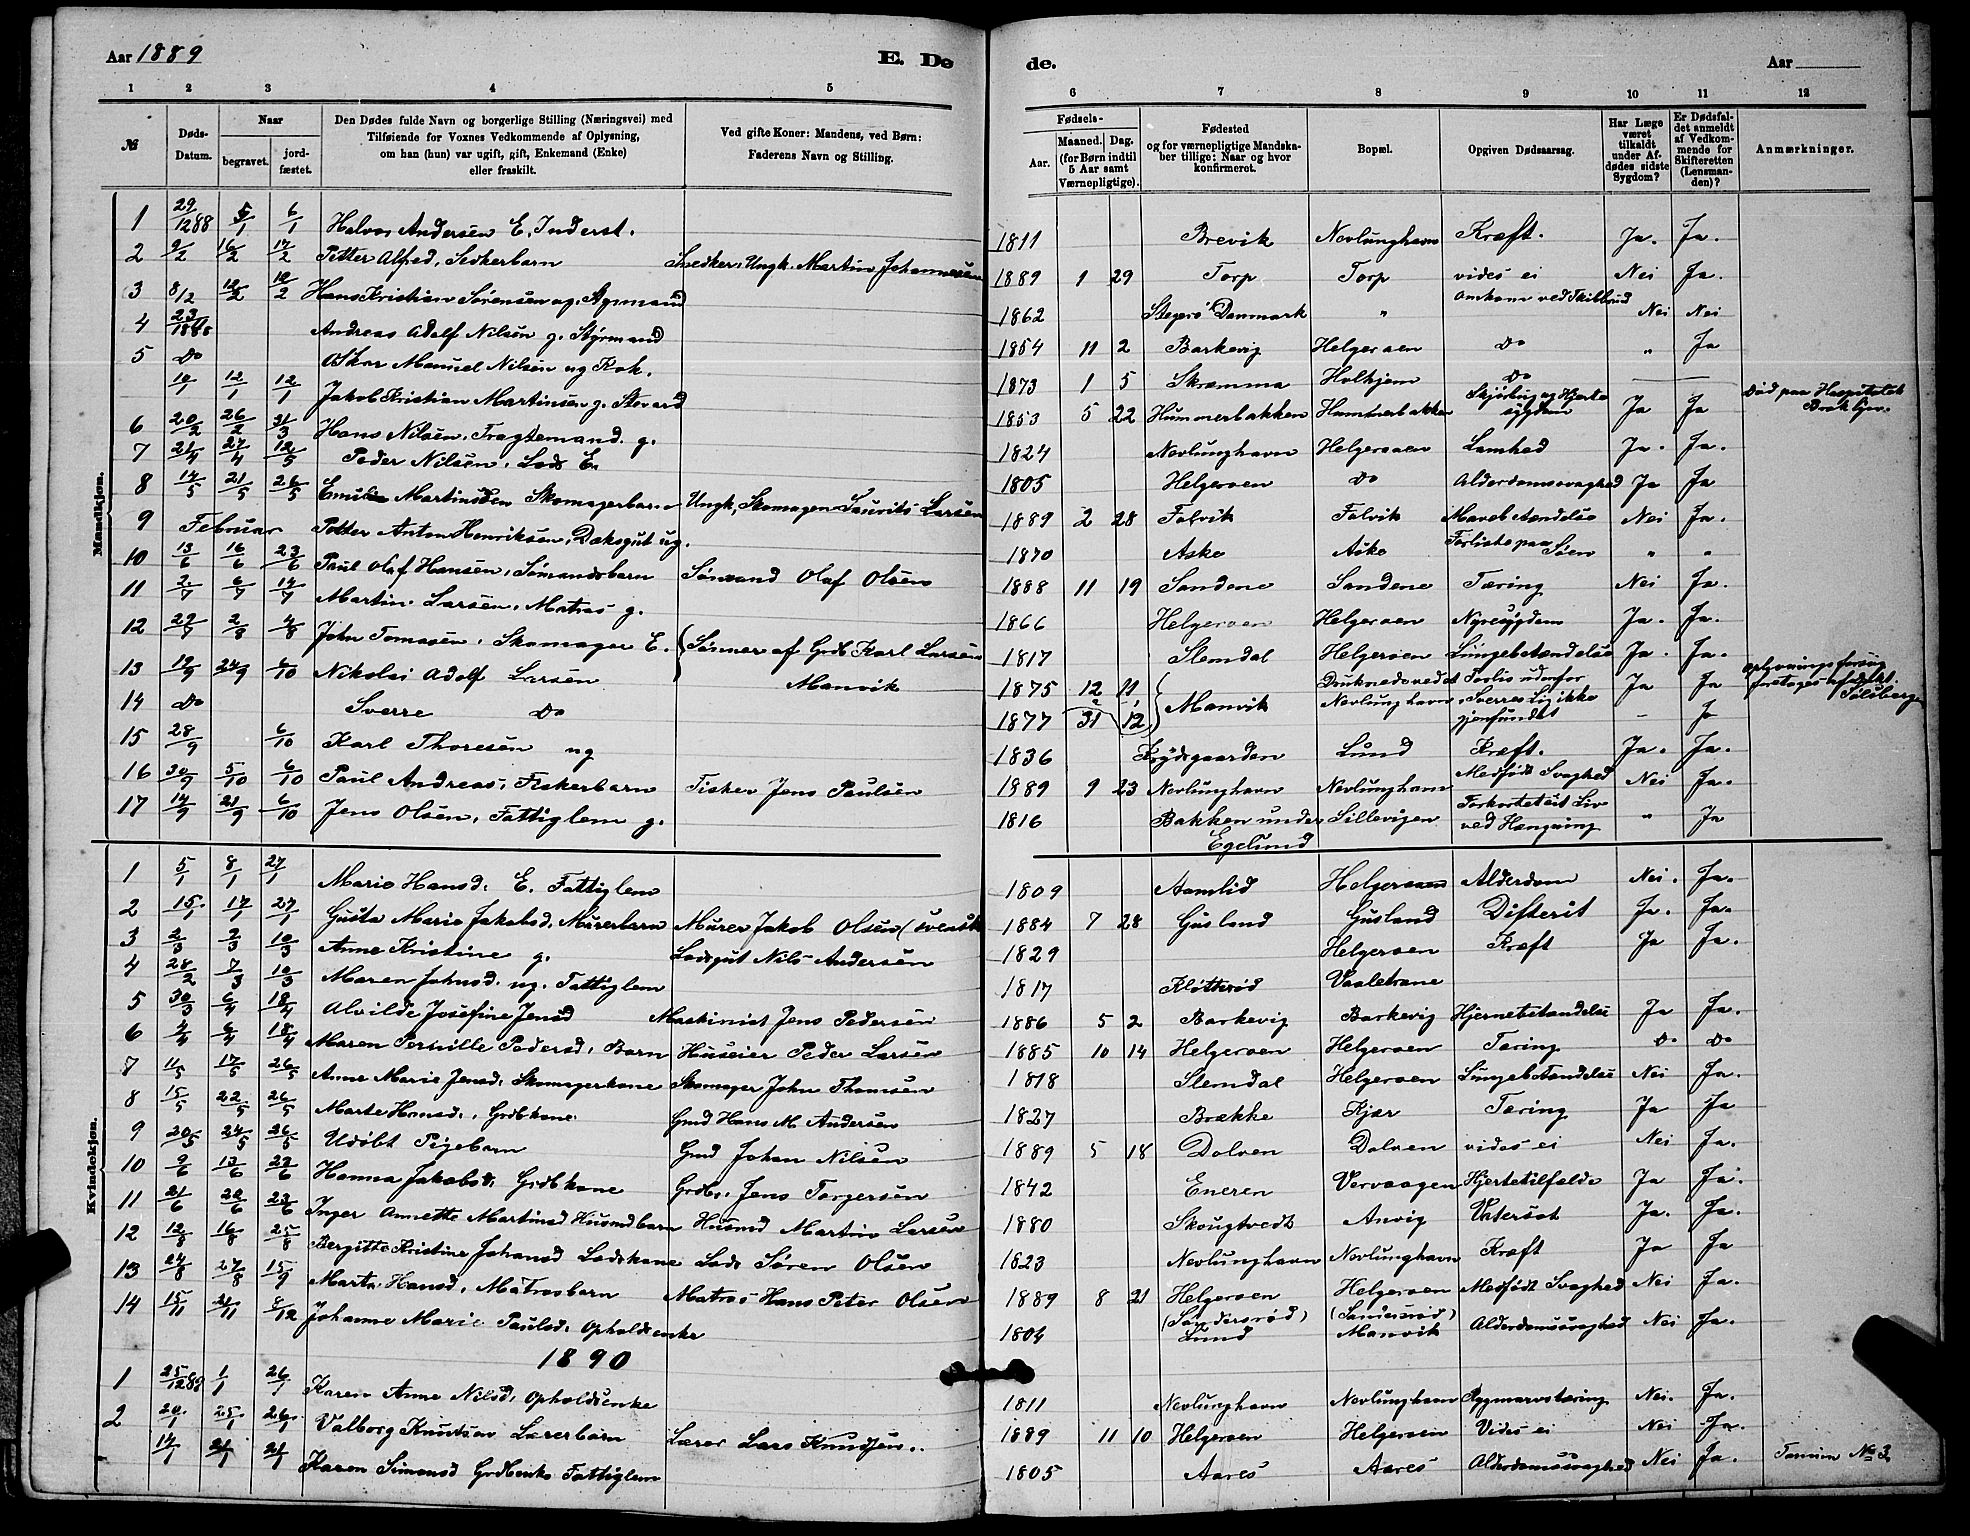 Aar 1889 E. Dø de. Aar
1 2 3 4 5 6 7 8 9 10 11 12
№ Døds-Datum. Naar begravet. jordfæstet. Den Dødes fulde Navn og borgerlige Stilling (Næringsvei) med Tilføiende for Voxnes Vedkommende af Oplysning, om han (hun) var ugift, gift, Enkemand (Enke) eller fraskilt. Ved gifte Koner: Mandens, ved Børn: Faderens Navn og Stilling. Fødsels- Aar. Maaned. Dag. (for Børn indtil 5 Aar samt Værnepligtige). Fødested og for værnepligtige Mandskaber tillige: Naar og hvor konfirmeret. Bopæl. Opgiven Dødsaarsag. Har Læge været tilkaldt under Afdødes sidste Sygdom? Er Dødsfaldet anmeldt af Vedkommende for Skifteretten (Lensmanden)? Anmærkninger.
Mandkjøn.
1 29/12 88 5/1 6/1 Halvor Andersen E. Inderst. 1811 Brevik Nevlunghavn Kræft. Ja. Ja.
2 9/2 16/2 17/2 Petter Alfred, Snedkerbarn Snedker, Ungk. Martin Johannesen 1889 1 29 Torp Torp vides ei Nei Ja.
3 8/2 12/2 Hans Kristian Sørensen ug. Styrmand 1862 Danmark " Omkom ved Skibbrud Nei Nei
4 23/ 1888 Andreas Adolf Nilsen g. Styrmand 1854 11 2 Barkevig Helgeroen Do " Ja
5 Do Oskar Manuel Nilsen ug Kok. 1873 1 5 Skræmma Holtjem Do
10/1 12/1 12/1 Jakob Kristian Martinsen g. 1853 5 22 Hummerbakken Hummerbakken Skjørbug og Hjertesygdom Ja Ja Død paa Hospitalet
6 20/2 26/2 31/3 Hans Nilsen, Fragtemand. g. 1824 Nevlunghavn Helgeroen Lamhed Ja. Ja.
7 21/4 27/4 12/5 Peder Nilsen, Lods E. 1805 Helgeroen Do Alderdomssvaghed Ja Ja
8 14/5 21/5 26/5 Martinsen Skomagerbarn Ungk, Skomager Laurits Larsen 1889 2 28 Falvik Falvik Mavebetændelse Nei Ja.
9 Februar Petter Anton Henriksen, Dæksgut ug. 1870 Aske Aske Forliste paa Søen " "
10 13/6 16/6 23/6 Paul Olaf Hansen, Sømandsbarn Sømand Olaf Olsen 1888 11 19 Sandene Sandene Tæring Nei Ja.
11 2/7 6/7 14/7 Martin Larsen, Matros g. 1866 Helgeroen Helgeroen Nyresygdom Ja. Ja.
12 29/7 2/8 4/8 John Tomasen, Skomager E. 1817 Stemdal Helgeroen Lungebetændelse Ja. Ja.
13 19/9 24/9 6/10 Nikolai Adolf Larsen { Sønner af Grdb Karl Larsen Manvik 1875 12 11 } Manvik Druknede ved Nevlunghavn, Forlis udenfor Ja Ja
14 Do Sverre Do 1877 31 12 Sverres Lig ikke gjenfundet – Ja
15 28/9 6/10 Karl Thoresen ug 1836 Frydsgaarden Lund Kræft. Ja. Ja.
16 30/9 5/10 6/10 Paul Andreas, Fiskerbarn Fisker Jens Paulsen 1889 9 23 Nevlunghavn Nevlunghavn Medfødt Svaghed Nei Ja.
17 14/9 21/9 6/10 Jens Olsen, Fattiglem g. 1816 Bakken under Egelund Sillevigen Forkortet sit Liv ved Hængning " Ja
Kvindekjøn.
1 5/1 8/1 27/1 Marie Hansd. E. Fattiglem 1809 Aamlid Helgeroen Alderdom Nei. Ja.
2 15/1 17/1 27/1 Gusta Marie Jakobsd. Murerbarn Murer Jakob Olsen (svensk 1884 7 28 Gusland Gusland Difterit Ja. Ja.
3 2/3 7/3 10/3 Anne Kristine g. Lodsgut Nils Andersen 1829 Helgeroen Kræft Ja Ja.
4 28/2 7/3 10/3 Maren Johnsd. ug. Fattiglem 1817 Kløtterød Vaaletrane
5 30/3 6/4 18/4 Alvilde Josefine Jensd Maskinist Jens Pedersen 1886 5 2 Barkevig Barkevig Hjernebetændelse Ja Ja.
6 2/4 6/4 18/4 Maren Pernille Pedersd, Barn Huseier Peder Larsen 1885 10 14 Helgeroen Helgeroen Tæring Do Do
7 11/5 17/5 26/5 Anne Marie Jensd, Skomagerkone Skomager John Thomsen 1818 Stemdal Helgeroen Lungebetændelse Nei Ja.
8 15/5 22/5 26/5 Marte Hansd., Grdbkone Gmd Hans M. Andersen 1827 Brække Kjær Tæring Ja Ja
9 20/5 24/5 26/5 Udøbt Pigebarn Gmd Johan Nilsen 1889 5 18 Dolven Dolven vides ei Nei Ja.
10 9/6 13/6 23/6 Hanna Jakobsd, Grdbkone Grdbr. Jens Torgersen 1842 Eneren Vervaagen Hjertetilfælde Ja Ja.
11 21/6 22/6 23/6 Inger Annette Martinsd Husmdbarn Husmd Martin Larsen 1880 Skougtvedt Anvig Vatersot Ja. Ja.
12 12/8 16/8 25/8 Bergitte Kristine Johansd Lodskone Lods Søren Olsen 1823 Nevlunghavn Nevlunghavn Kræft Ja Ja
13 24/8 27/8 15/9 Marta Hansd, Matrosbarn Matros Hans Peter Olsen 1889 8 21 Helgeroen (Søndersrød) Helgeroen (Søndersrød) Medfødt Svaghed Nei Ja.
14 15/11 21/11 8/12 Johanne Marie Paulsd, Opholdsenke 1804 Lund Manvik Alderdomssvaghed Nei Ja.
1890
1 25/12 89 1/1 26/1 Karen Anne Nilsd, Opholdsenke 1811 Nevlunghavn Nevlunghavn Rygmarvstæring Nei. Ja.
2 20/1 25/1 26/1 Valborg Knutsen Lærerbarn Lærer Lars Knudsen. 1889 11 10 Helgeroen Helgeroen Vides ei Nei Ja.
14/1 21/1 21/1 Karen Simonsd Grdbenke Fattiglem 1805 Aares Aares Alderdomssvaghed Nei Ja. № 3